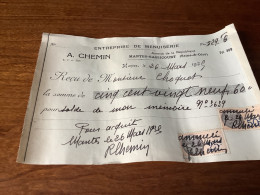 ENTREPRISE DE MENUISERIE
A. CHEMIN
MANTES-GASSICOURT (Seine-et-Oise)
26 Mars 1929
Reçu de Monsieur Choquet
la somme de cinq cent vingt neuf, 60
pour solde de mon mémoire N° 3629
Pour acquit
Mantes le 26 Mars 1929
R Chemin